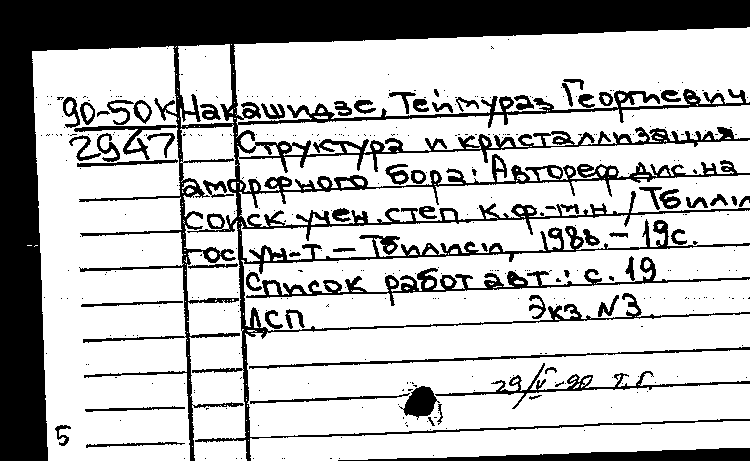 90-50К Накашидзе, Теймураз Георгиевич
2947 Структура и кристаллизация
аморфного бора: Автореф. дис. на
соиск. учен. степ. к.ф.-м.н. / Тбилис
гос. ун-т. – Тбилиси, 1986. – 19с.
Список работ авт.: с. 19
ДСП. Экз. N3.
29/V-90 т.г.
5